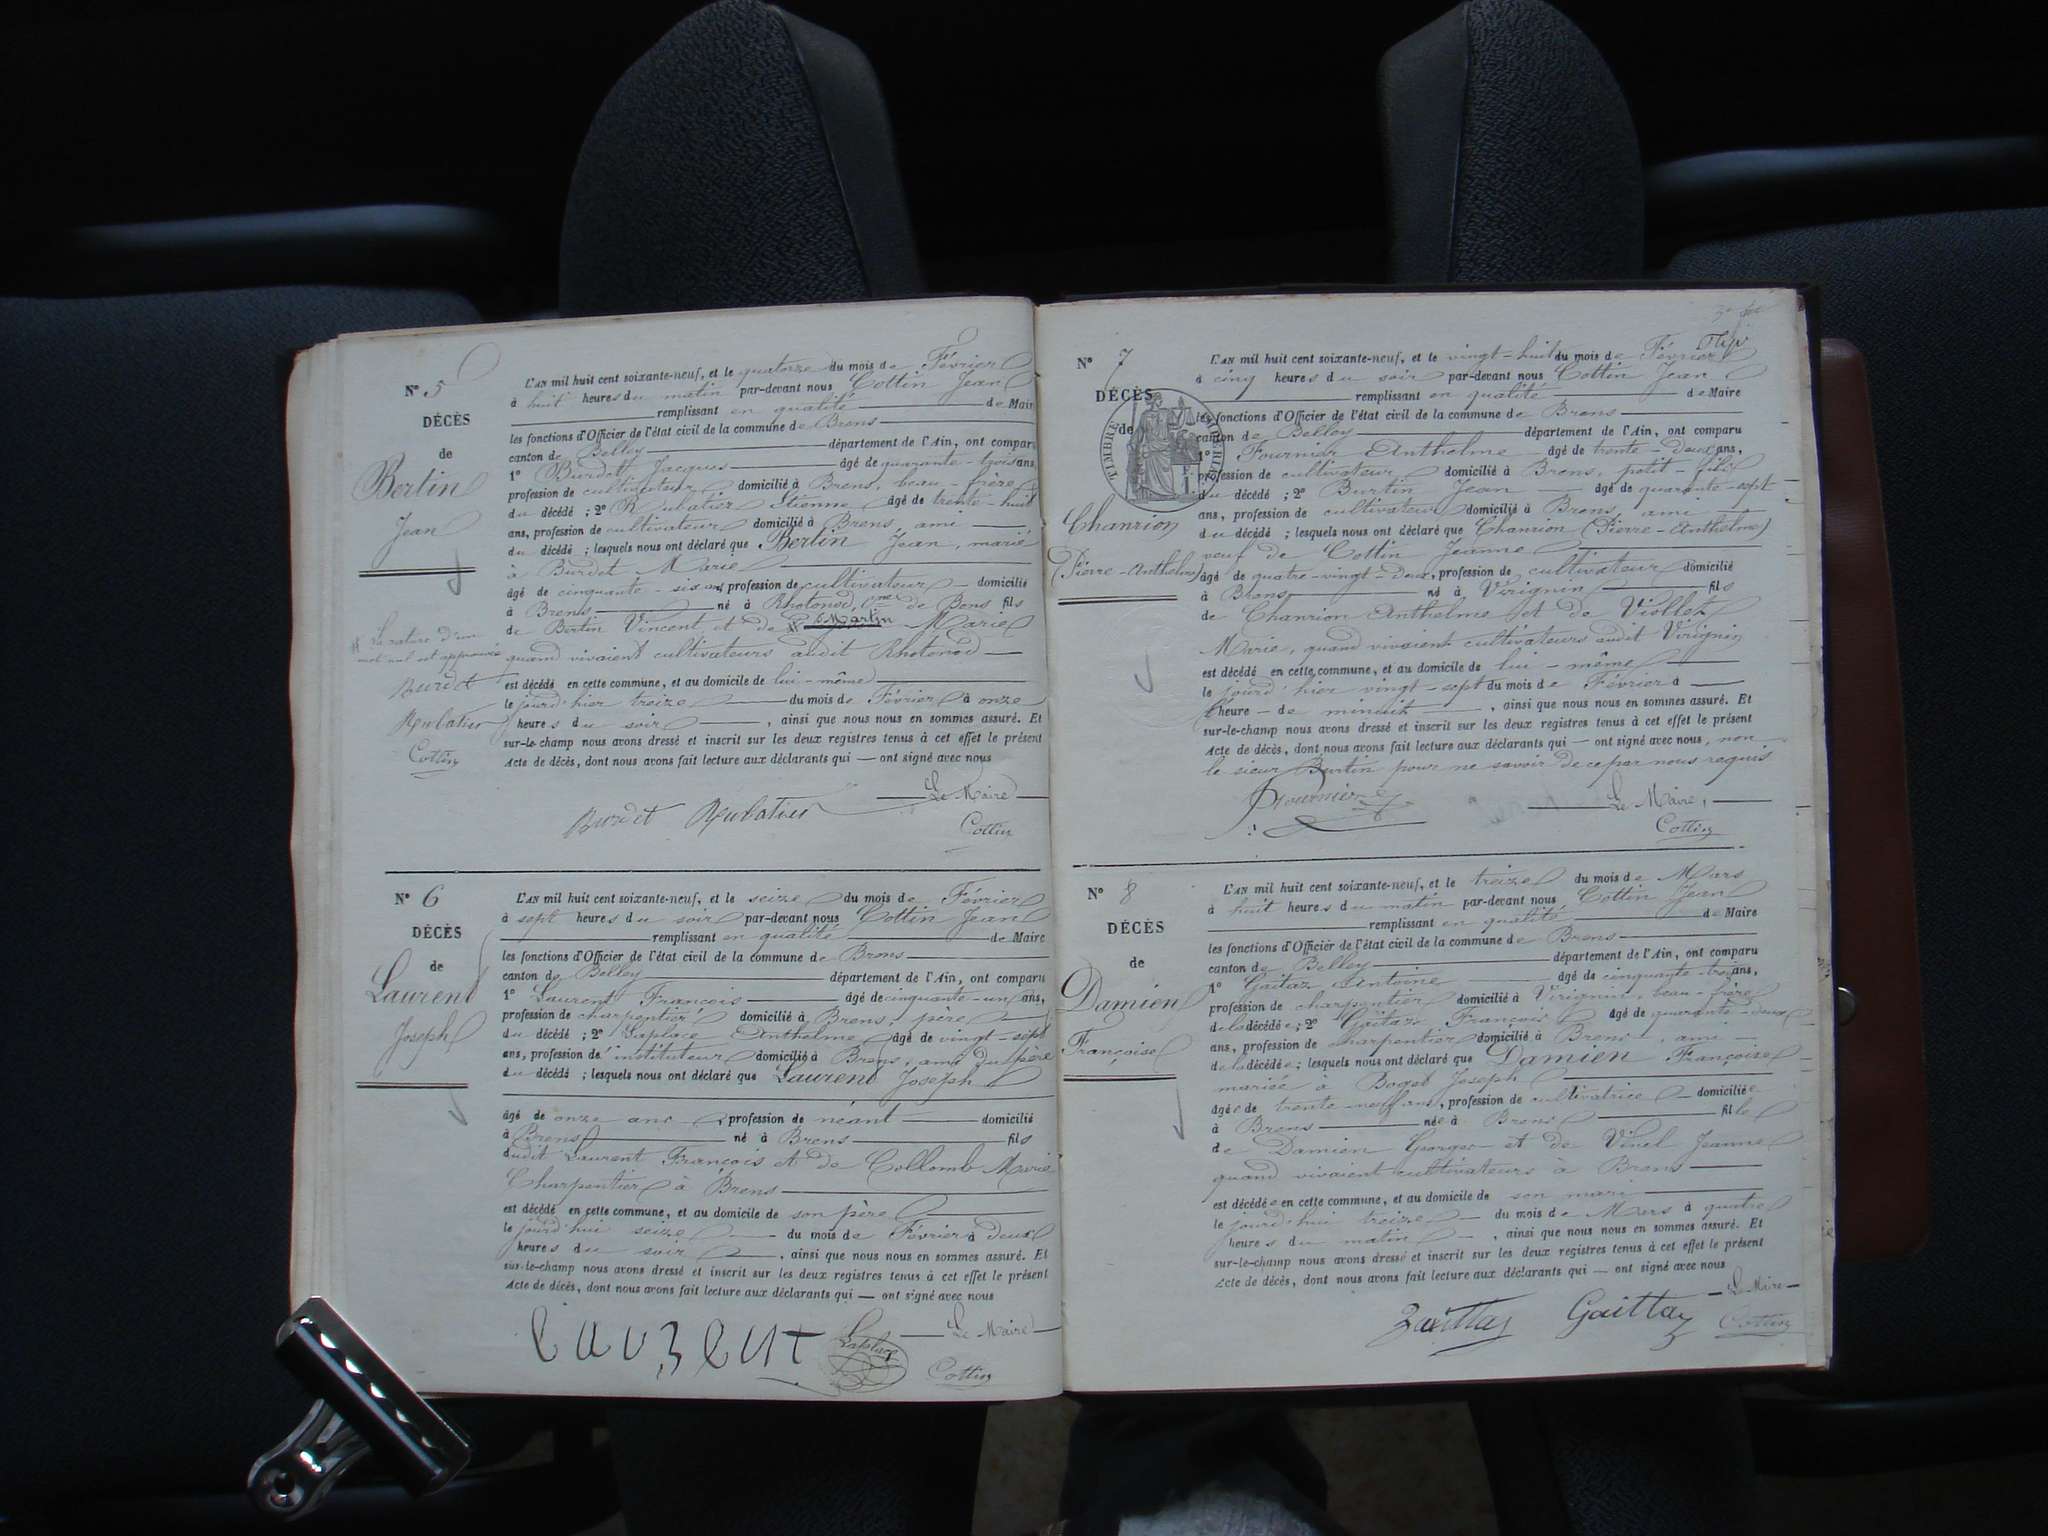 N° 5
DÉCÈS
de
Bertin
Jean
# La rature d'un
mot nul est approuvée
Burdet
Rubatier
Cottin
L'AN mil huit cent soixante-neuf, et le quatorze du mois de Février
à huit heures du matin par-devant nous Cottin Jean
remplissant en qualité de Maire
les fonctions d'Officier de l'état civil de la commune de Brens
canton de Belley département de l'Ain, ont comparu
1° Burdet Jacques âgé de quarante-trois ans,
profession de cultivateur domicilié à Brens, beau-frère
du décédé ; 2° Rubatier Etienne âgé de trente-huit
ans, profession de cultivateur domicilié à Brens, ami
du décédé ; lesquels nous ont déclaré que Bertin Jean, marié
à Burdet Marie
âgé de cinquante-six ans, profession de cultivateur domicilié
à Brens né à Rhotonod, Cne de Bons fils
de Bertin Vincent et de # Martin Marie
quand vivaient cultivateurs audit Rhotonod
est décédé en cette commune, et au domicile de lui-même
le jourd'hier treize du mois de Février à onze
heures du soir, ainsi que nous nous en sommes assuré. Et
sur-le-champ nous avons dressé et inscrit sur les deux registres tenus à cet effet le présent
Acte de décès, dont nous avons fait lecture aux déclarants qui — ont signé avec nous
Le Maire
Burdet Rubatier
Cottin
N° 6
DÉCÈS
de
Laurent
Joseph
L'AN mil huit cent soixante-neuf, et le seize du mois de Février
à sept heures du soir par-devant nous Cottin Jean
remplissant en qualité de Maire
les fonctions d'Officier de l'état civil de la commune de Brens
canton de Belley département de l'Ain, ont comparu
1° Laurent François âgé de cinquante-un ans,
profession de charpentier domicilié à Brens, père
du décédé ; 2° Laplace Anthelme âgé de vingt-sept
ans, profession d'instituteur domicilié à Brens, ami du père
du décédé ; lesquels nous ont déclaré que Laurent Joseph
âgé de onze ans profession de néant domicilié
à Brens né à Brens fils
dudit Laurent François et de Collomb Marie
Charpentier à Brens
est décédé en cette commune, et au domicile de son père
le jourd'hui seize du mois de Février à deux
heures du soir, ainsi que nous nous en sommes assuré. Et
sur-le-champ nous avons dressé et inscrit sur les deux registres tenus à cet effet le présent
Acte de décès, dont nous avons fait lecture aux déclarants qui — ont signé avec nous
Le Maire
Laurent Laplace
Cottin
N° 7
DÉCÈS
de
TIMBRE IMPÉRIAL
Chanrion
(Pierre-Anthelme)
L'AN mil huit cent soixante-neuf, et le vingt-huit du mois de Février
à cinq heures du soir par-devant nous Cottin Jean
remplissant en qualité de Maire
les fonctions d'Officier de l'état civil de la commune de Brens
canton de Belley département de l'Ain, ont comparu
1° Fournier Anthelme âgé de trente-deux ans,
profession de cultivateur domicilié à Brens, petit-fils
du décédé ; 2° Burtin Jean âgé de quarante-sept
ans, profession de cultivateur domicilié à Brens, ami
du décédé ; lesquels nous ont déclaré que Chanrion (Pierre-Anthelme)
veuf de Cottin Jeanne
âgé de quatre-vingt-deux, profession de cultivateur domicilié
à Brens né à Virignin fils
de Chanrion Anthelme et de Viollet
Marie, quand vivaient cultivateurs audit Virignin
est décédé en cette commune, et au domicile de lui-même
le jourd'hier vingt-sept du mois de Février à
l'heure de minuit, ainsi que nous nous en sommes assuré. Et
sur-le-champ nous avons dressé et inscrit sur les deux registres tenus à cet effet le présent
Acte de décès, dont nous avons fait lecture aux déclarants qui — ont signé avec nous, non
le sieur Burtin pour ne savoir de ce par nous requis
Fournier
Le Maire,
Cottin
N° 8
DÉCÈS
de
Damien
Françoise
L'AN mil huit cent soixante-neuf, et le treize du mois de Mars
à huit heures du matin par-devant nous Cottin Jean
remplissant en qualité de Maire
les fonctions d'Officier de l'état civil de la commune de Brens
canton de Belley département de l'Ain, ont comparu
1° Gaitaz Antoine âgé de cinquante-trois ans,
profession de charpentier domicilié à Virignin, beau-frère
de la décédée ; 2° Gaitaz François âgé de quarante-deux
ans, profession de charpentier domicilié à Brens, ami
de la décédée ; lesquels nous ont déclaré que Damien Françoise
mariée à Boget Joseph
âgée de trente-neuf ans, profession de cultivatrice domiciliée
à Brens née à Brens fille
de Damien Georges et de Jeanne
quand vivaient cultivateurs à Brens
est décédée en cette commune, et au domicile de son mari
le jourd'hui treize du mois de Mars à quatre
heures du matin, ainsi que nous nous en sommes assuré. Et
sur-le-champ nous avons dressé et inscrit sur les deux registres tenus à cet effet le présent
Acte de décès, dont nous avons fait lecture aux déclarants qui — ont signé avec nous
Le Maire
Gaittaz Gaittaz
Cottin